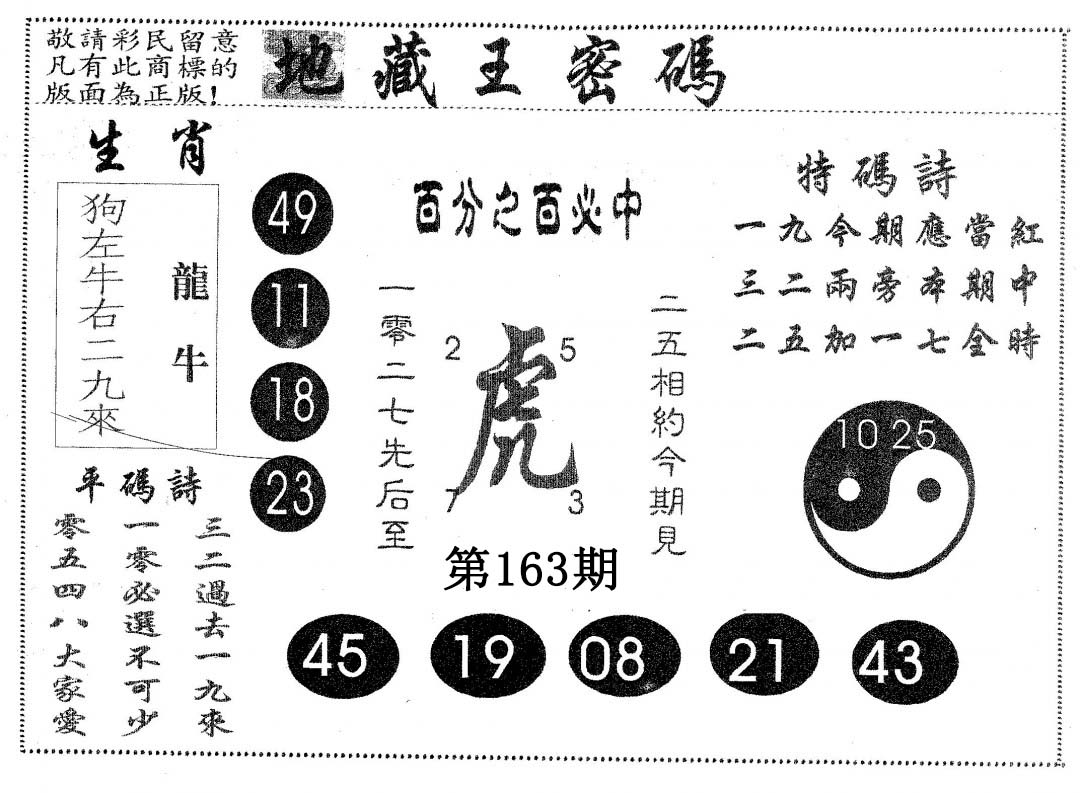 敬請彩民留意
凡有此商標的
版面為正版!
地藏王密碼
生肖
狗左牛右二九來
龍牛
49
11
18
23
百分之百必中
一零二七先后至
2 5
虎
7 3
二五相約今期見
第163期
特碼詩
一九今期應當紅
三二兩旁本期中
二五加一七全時
10 25
平碼詩
三二過去一九來
一零必選不可少
零五四八大家愛
45 19 08 21 43